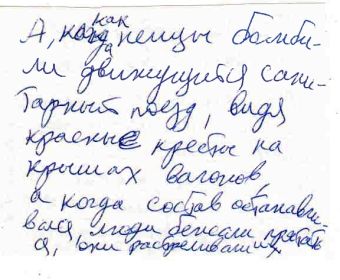 А, как немцы бомби-
ли движущийся сани-
тарный поезд, видя
красные кресты на
крышах вагонов,
а когда состав останавли
вался, люди бежали прятать
ся, они расстреливали их